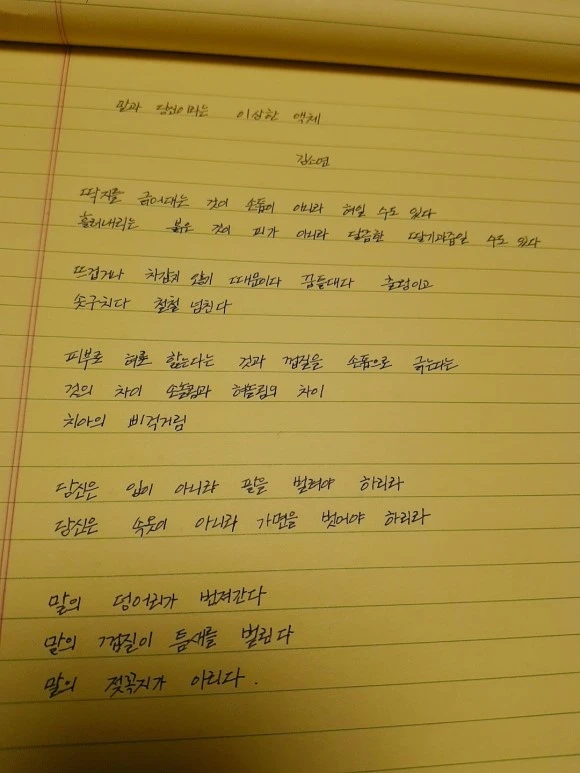 말과 당신이라는 이상한 액체
김소연
딱지를 긁어대는 것이 손톱이 아니라 혀일 수도 있다
흘러내리는 붉은 것이 피가 아니라 달콤한 딸기과즙일 수도 있다
뜨겁거나 차갑지 않기 때문이다 꿈틀대다 출렁이고
솟구치다 철철 넘친다
피부로 혀로 핥는다는 것과 껍질을 손톱으로 긁는다는
것의 차이 손놀림과 혀놀림의 차이
치아의 삐걱거림
당신은 입이 아니라 팔을 벌려야 하리라
당신은 속옷이 아니라 가면을 벗어야 하리라
말의 덩어리가 번져간다
말의 껍질이 틈새를 벌린다
말의 젖꼭지가 아리다.